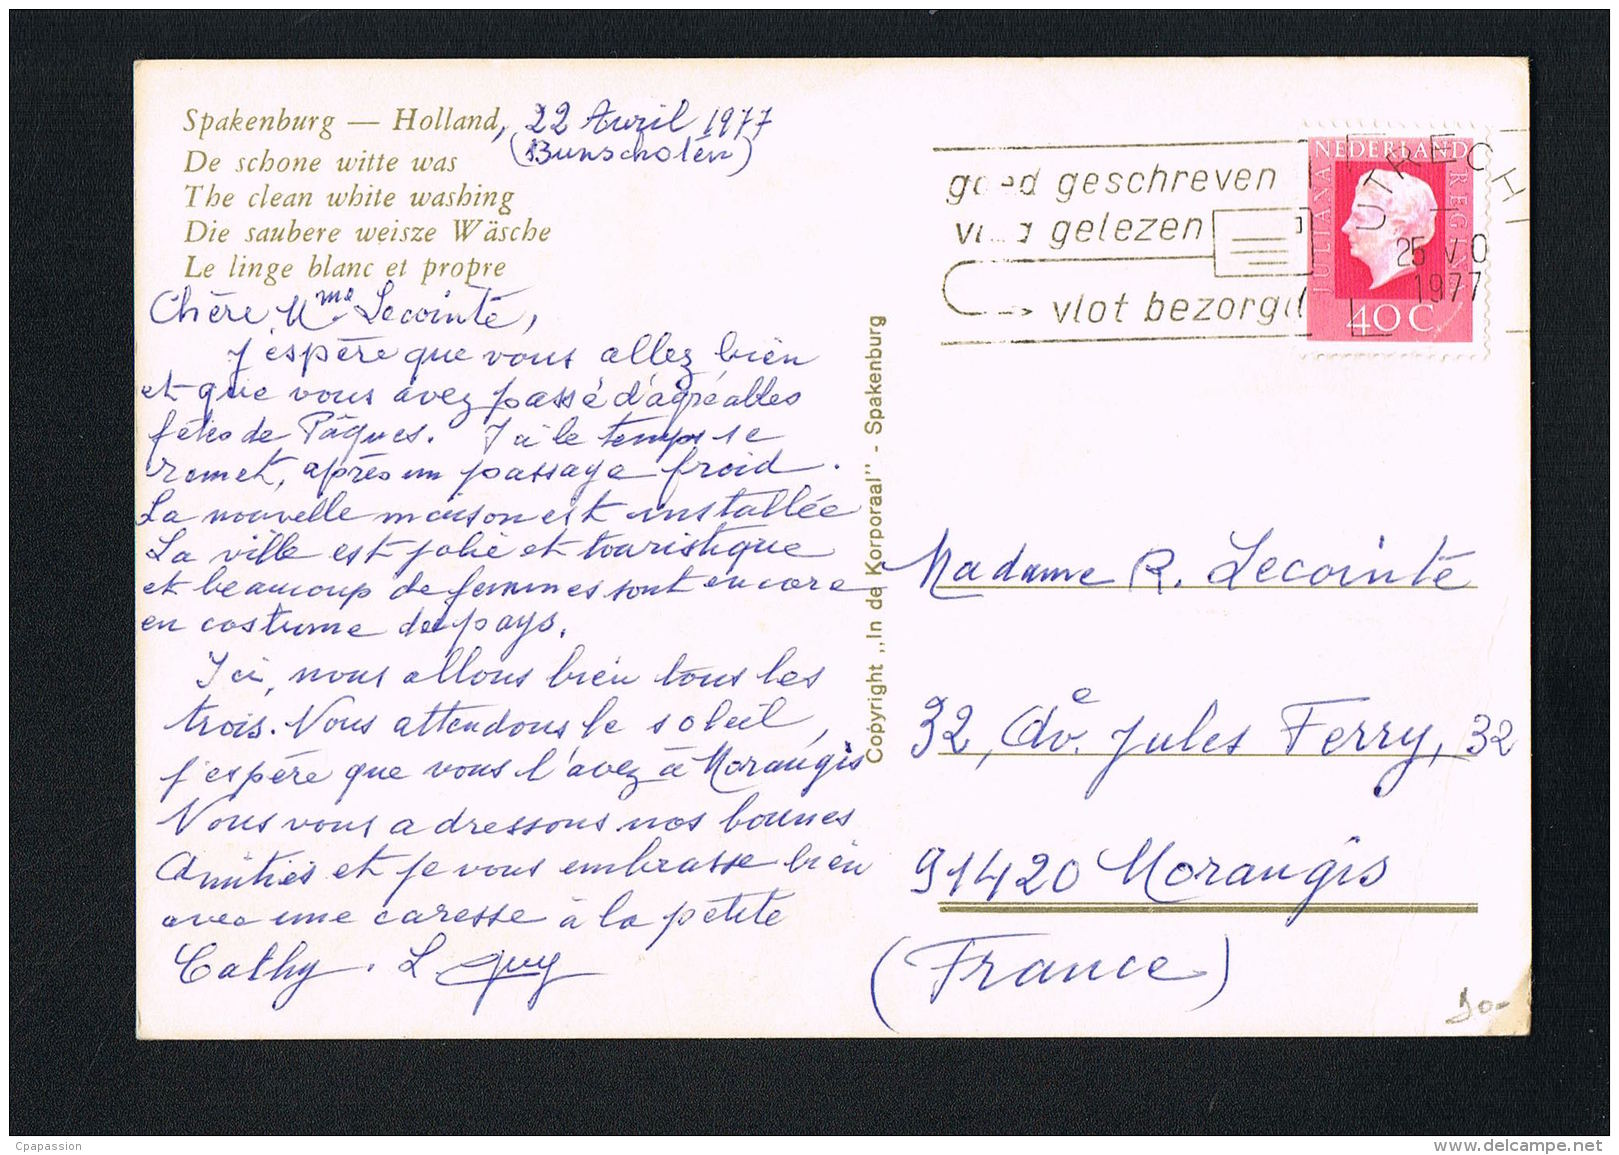 Spakenburg — Holland, 22 Avril 1977
(Bunschoten)
De schone witte was
The clean white washing
Die saubere weisze Wäsche
Le linge blanc et propre
Chère Mme Lecointe,
J'espère que vous allez bien
et que vous avez passé d'agréables
fêtes de Pâques. Ici le temps se
remet, après un passage froid.
La nouvelle maison est installée
La ville est jolie et touristique
et beaucoup de femmes sont encore
en costume de pays.
Ici, nous allons bien tous les
trois. Nous attendons le soleil,
j'espère que vous l'avez à Morangis
Nous vous adressons nos bonnes
Amitiés et je vous embrasse bien
avec une caresse à la petite
Cathy.
Copyright ,,In de Korporaal" - Spakenburg
goed geschreven
gelezen
vlot bezorgd
NEDERLAND
JULIANA REGINA
40 C
UTRECHT
25 V 0
1977
Madame R. Lecointe
32, Ave. Jules Ferry, 32
91420 Morangis
(France)
Cpapassion
www.delcampe.net